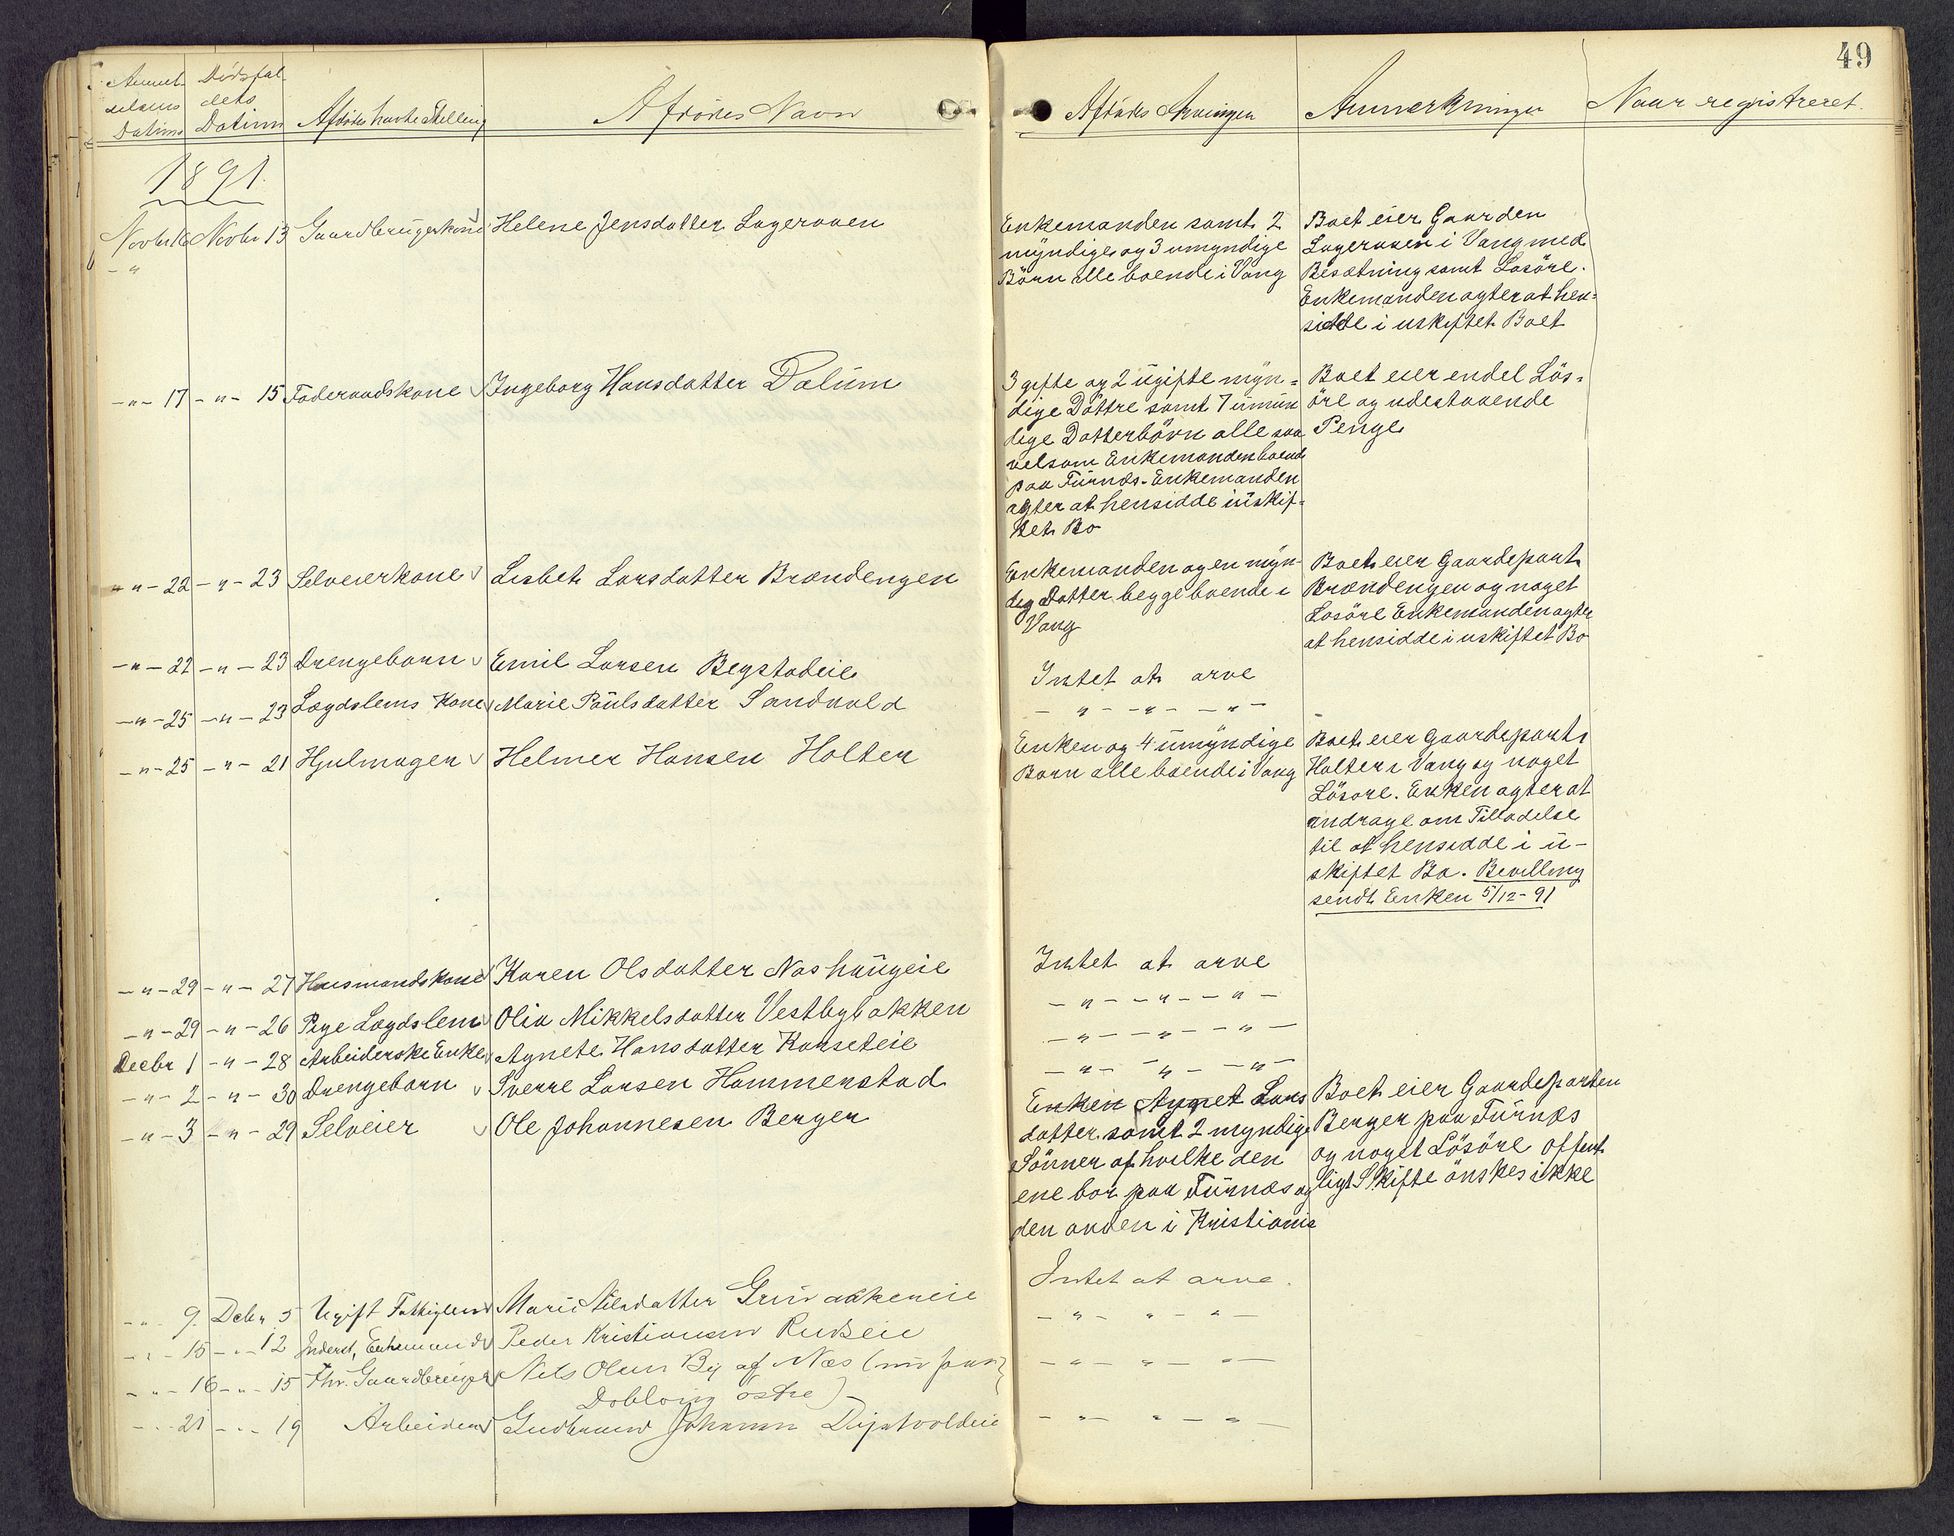 49
Anmel-
delsens
Datum
Dødsfal
dets
Datum
Afdødes havte Stilling
Afdødes Navn
Afdødes Arvinger
Anmerkninger
Naar registreret.
1891.
Novbr 16 Novbr 13 Gaardbrugerkone Helene Jensdatter Lageraaen
Enkemanden samt 2
myndige og 3 umyndige
Børn alle boende i Vang
Boet eier Gaarden
Lageraaen i Vang med
Besætning samt Løsøre.
Enkemanden agter at hen-
sidde i uskiftet Boet
-"- 17 -"- 15 Føderaadskone Ingeborg Hansdatter Dælum
3 gifte og 2 ugifte myn-
dige Døttre samt 7 umyn
dige Datterbørn alle saa
velsom Enkemanden boende
paa Furnæs - Enkemanden
agter at hensidde i uskif-
tet Bo
Boet eier endel Løs-
øre og udestaaende
Penge
-"- 22 -"- 23 Selveierkone Lisbet Larsdatter Brændengen
Enkemanden og en myn-
dig Datter begge boende i
Vang
Boet eier Gaardepart
Brændengen og noget
Løsøre Enkemanden agter
at hensidde i uskiftet Bo
-"- 22 -"- 23 Drengebarn Emil Larsen Begstadeie
Intet at arve
-"- 25 -"- 23 Lægdslems Kone Marie Paulsdatter Sandvold
-"- -"- -"-
-"- 25 -"- 21 Hjulmager Helmer Hansen Holter
Enken og 4 umyndige
Børn alle boende i Vang
Boet eier Gaardepart
Holter i Vang og noget
Løsøre. Enken agter at
andrage om Tilladelse
til at hensidde i u-
skiftet Bo. Bevilling
sendt Enken 5/12-91
-"- 29 -"- 27 Husmandskone Karen Olsdatter Nashaugeie
Intet at arve
-"- 29 -"- 26 Pige Lægdslem Olia Mikkelsdatter Vestbybakken
-"- -"- -"-
Decbr 1 -"- 28 Arbeiderske Enke Agnete Hansdatter Korseteie
-"- -"- -"-
-"- 2 -"- 30 Drengebarn Sverre Larsen Hammerstad
-"- -"- -"-
-"- 3 -"- 29 Selveier Ole Johannesen Berger
Enken Agnet Lars
datter samt 2 myndige
Sønner af hvilke den
ene bor paa Furnæs og
den anden i Kristiania
Boet eier Gaardeparten
Berger paa Furnæs
og noget Løsøre offent
ligt Skifte ønskes ikke
-"- 9 Debr 5 Ugift Fattiglem Marie Nilsdatter Grünbakkeneie
Intet at arve.
-"- 15 -"- 12 Inderst, Enkemand Peder Kristiansen Rudseie
-"- -"- -"-
-"- 16 -"- 15 Fhv. Gaardbruger Nils Olsen By af Næs (nu paa
Dobloug østre)
-"- -"- -"-
-"- 21 -"- 19 Arbeider Gudbrand Johansen Digstvoldeie
-"- -"- -"-